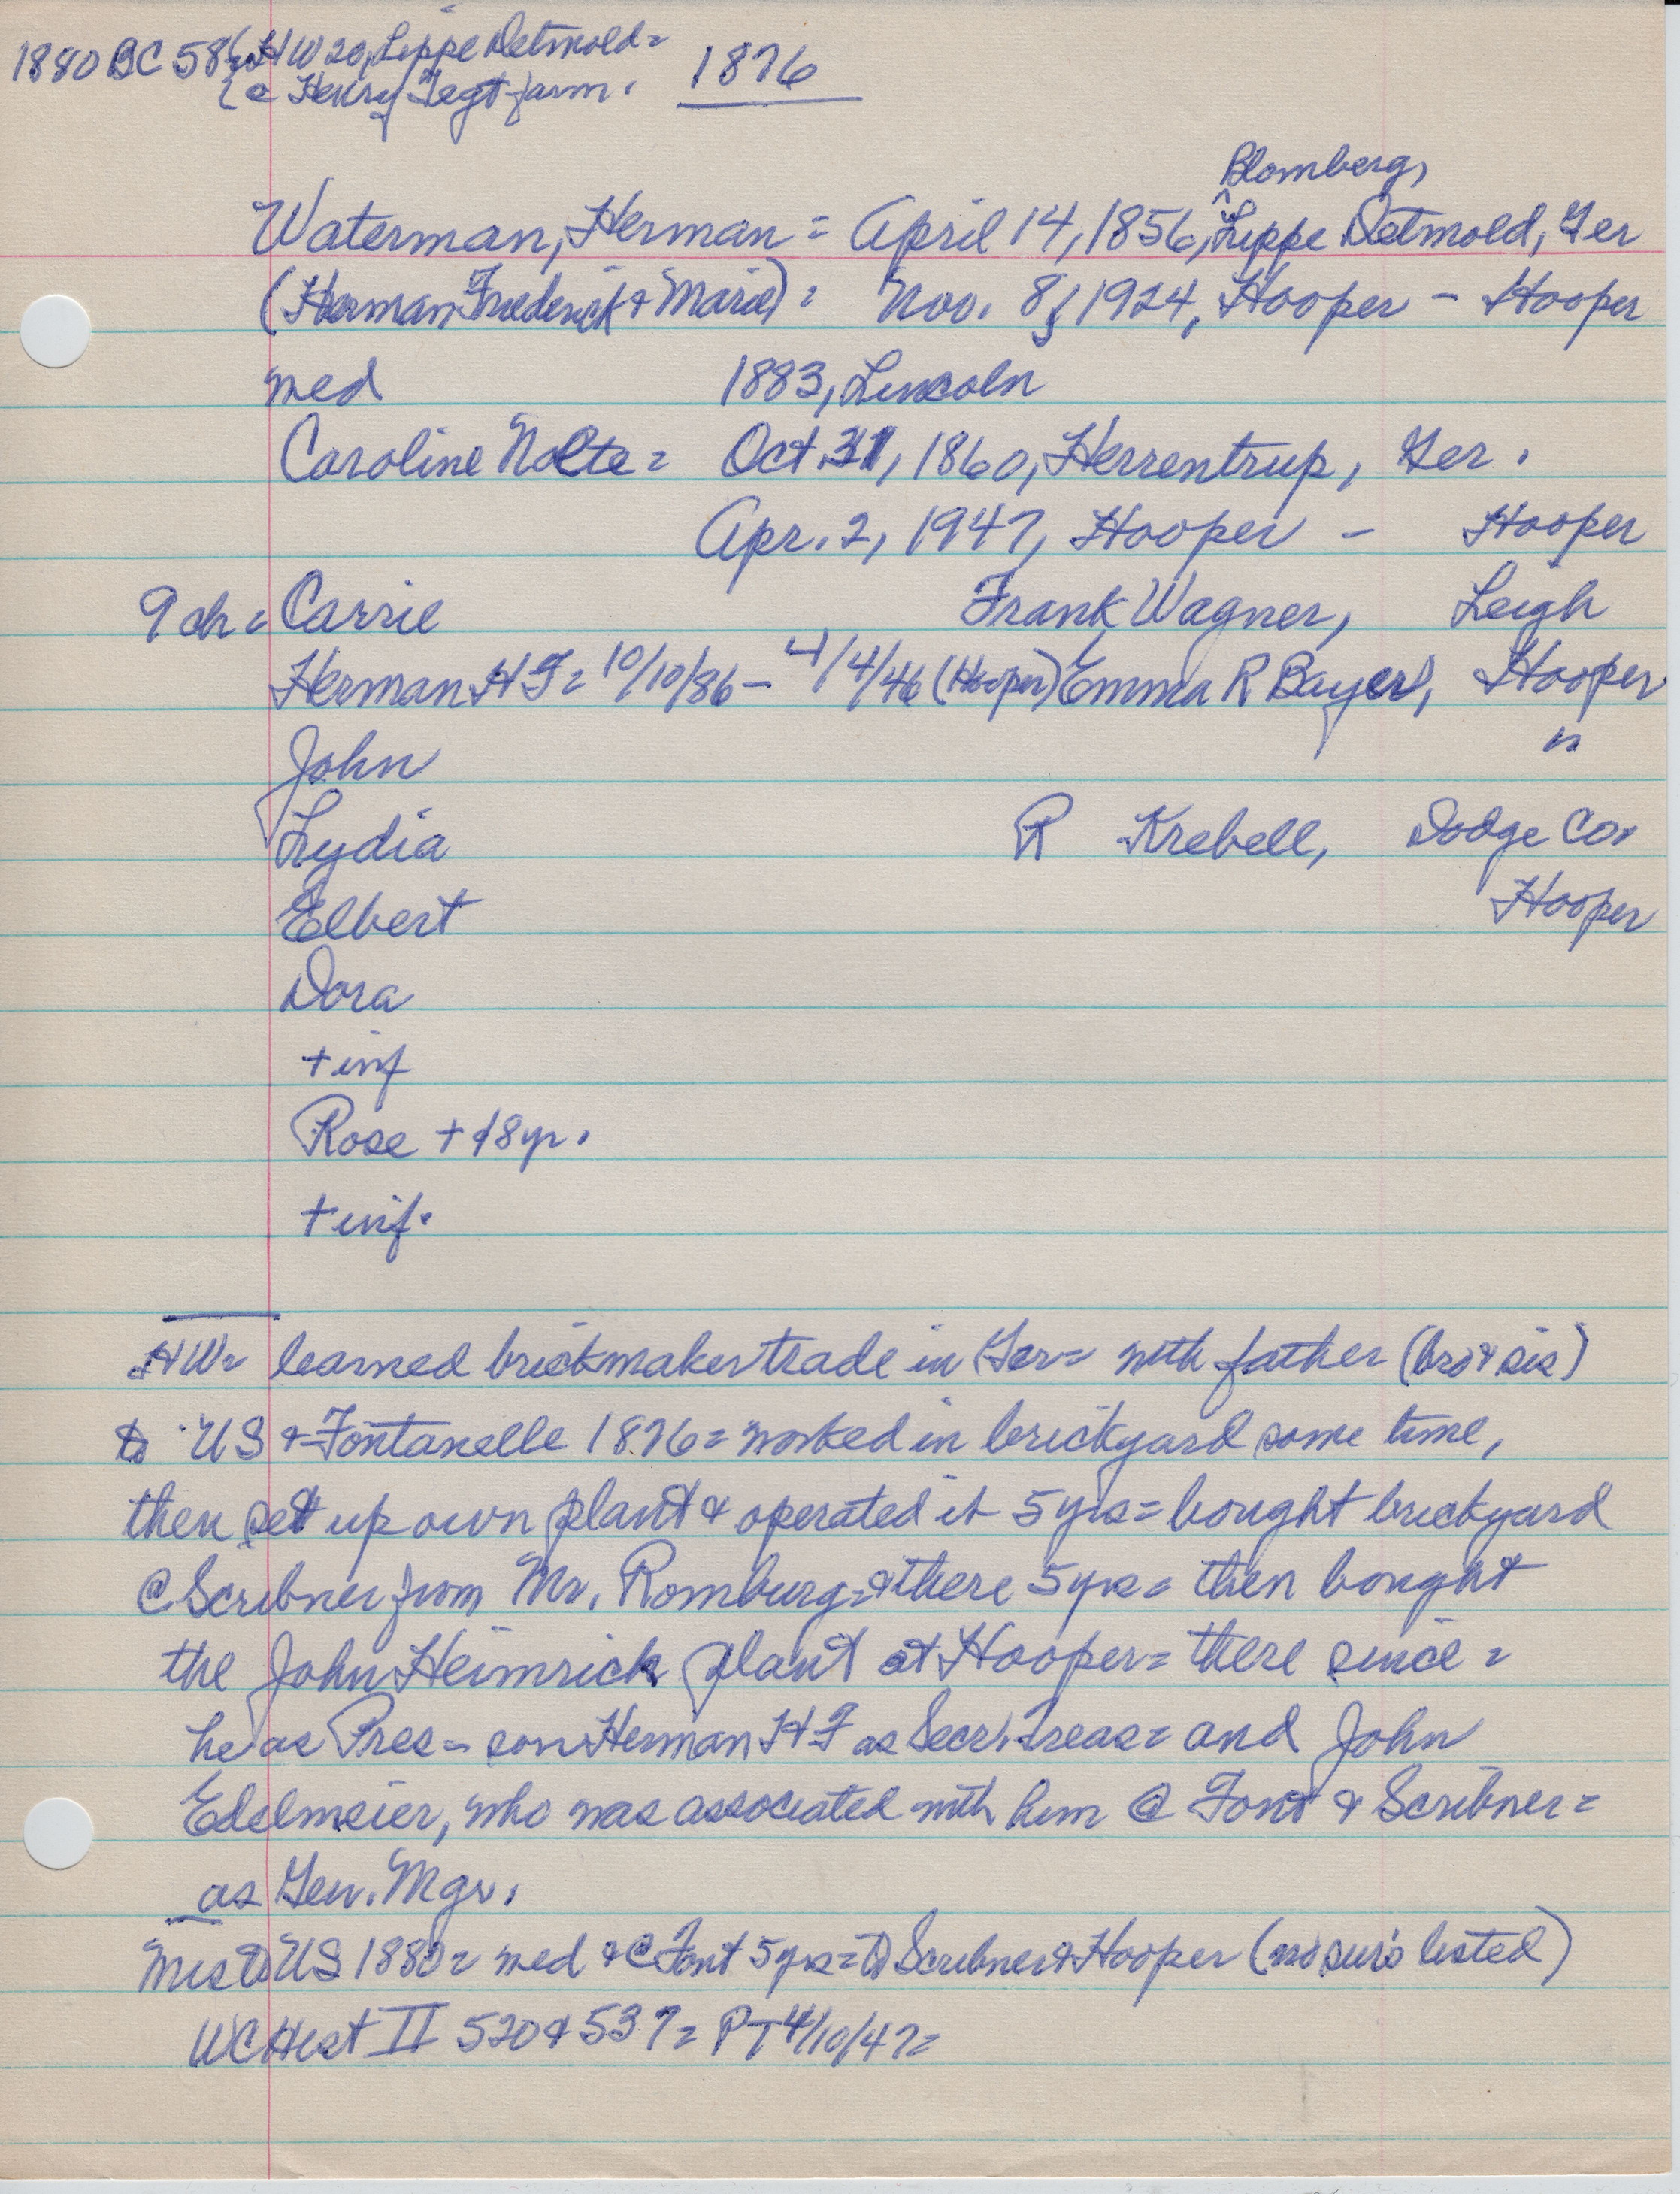 1880 BC 58 { HW 20, Lippe Detmold =
{ @ Henry Tegt farm.
1876
Blomberg,
Waterman, Herman = April 14, 1856, ^ Lippe Detmold, Ger
(Herman Frederick & Marie) = Nov. 8, 1924, Hooper - Hooper
med 1883, Lincoln
Caroline Nolte = Oct. 31, 1860, Herrentrup, Ger.
Apr. 2, 1947, Hooper - Hooper
9 ch = Carrie Frank Wagner, Leigh
Herman HF = 10/10/86 - 4/4/46 (Hooper) Emma R Bayer, Hooper
John "
Lydia R Krebell, Dodge Co.
Elbert Hooper
Dora
+ inf
Rose + 18 yr.
+ inf.
HW = learned brickmaker trade in Ger = with father (bro & sis)
to US & Fontanelle 1876 = worked in brickyard some time,
then set up own plant & operated it 5 yrs = bought brickyard
@ Scribner from Mr. Romburg = & there 5 yrs = then bought
the John Heimrick plant at Hooper = there since =
he as Pres - son Herman HF as Secr. Treas = and John
Edelmeier, who was associated with him @ Font & Scribner =
as Gen. Mgr.
Mrs to US 1882 = med & @ Font 5 yrs = to Scribner & Hooper (no surv listed)
WCHist II 520 & 537 = PT 4/10/47 =